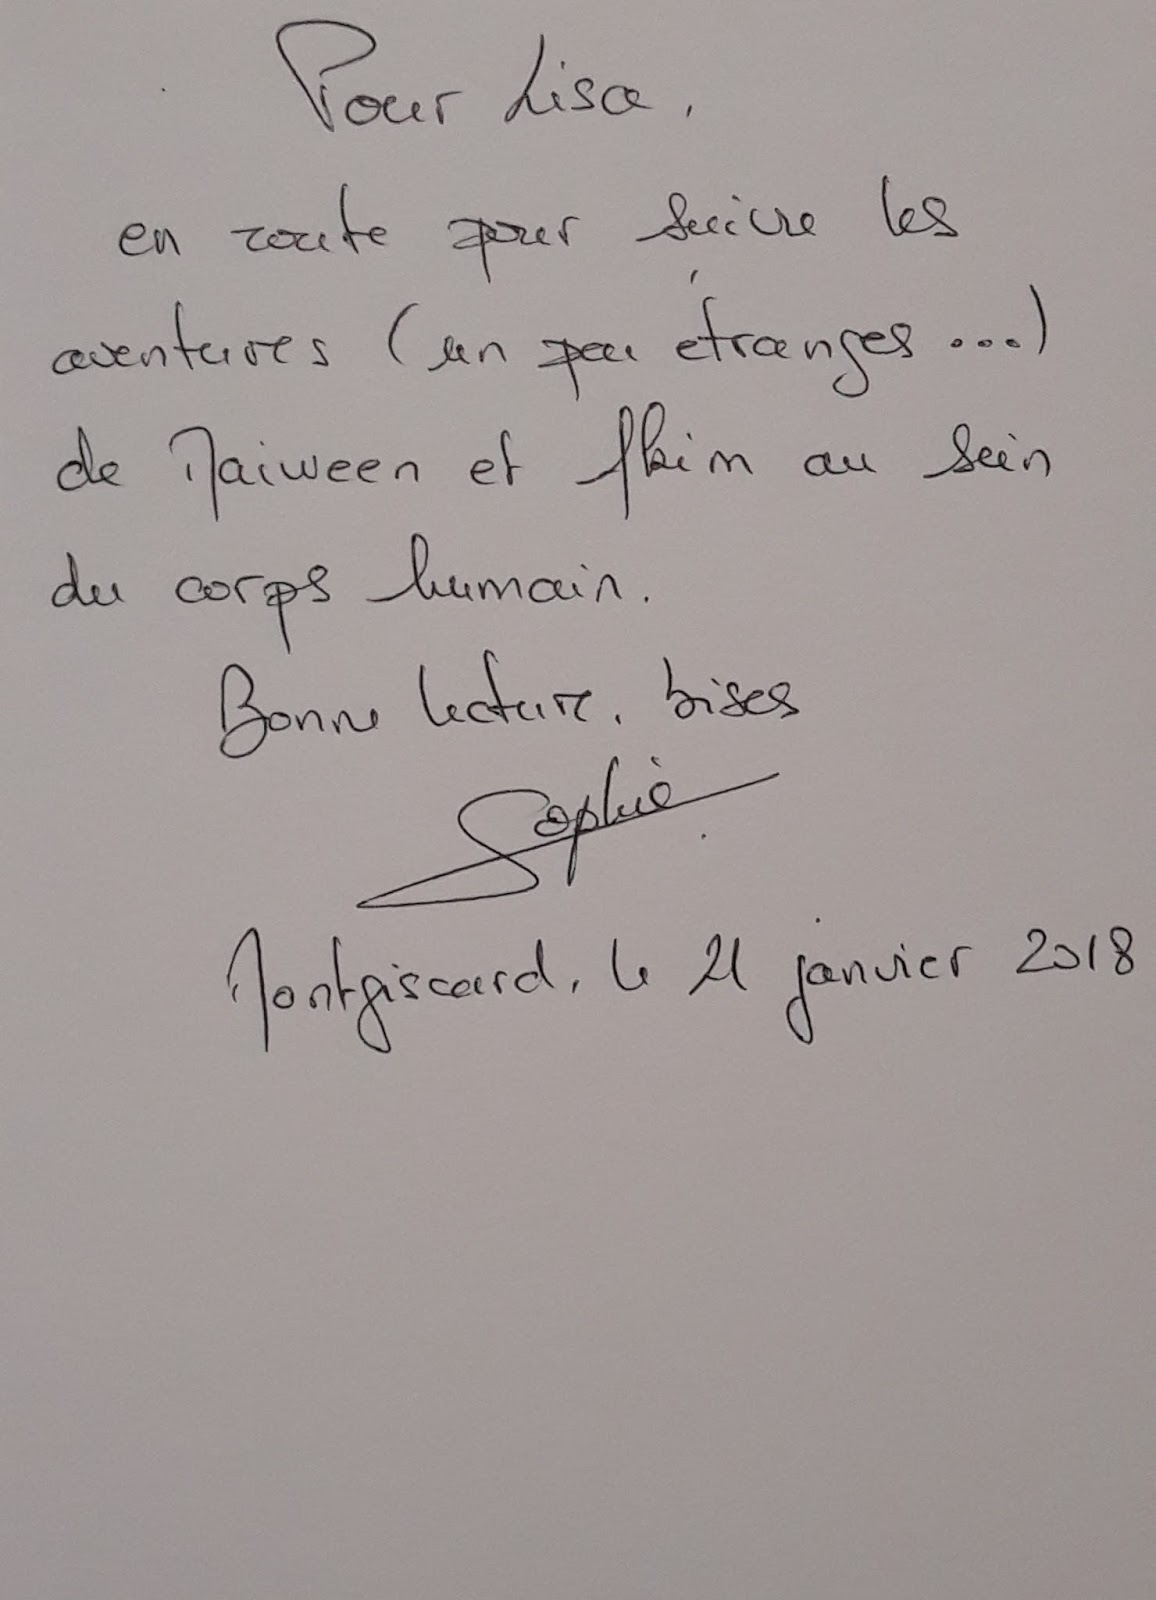 Pour Lisa,
en route pour suivre les
aventures (un peu étranges ...)
de Maiween et Akim au sein
du corps humain.
Bonne lecture, bises
Sophie
Montgiscard, le 21 janvier 2018